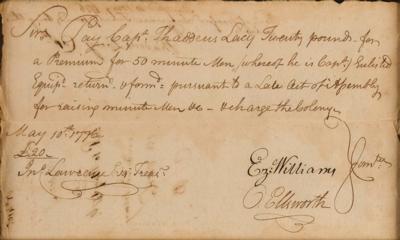 Sir Pay Capt. Thaddeus Lacy Twenty pounds for
a Premium for 50 minute Men, whereof he is Capt. Enlisted
Equip. return. & form. pursuant to a Late Act of Assembly
for raising minute Men &c - & charge the Colony
May 10th. 1776
£20..
Jno. Lawrence Esqr. Treasr.
Ez. Williams
Ellsworth
Comtee